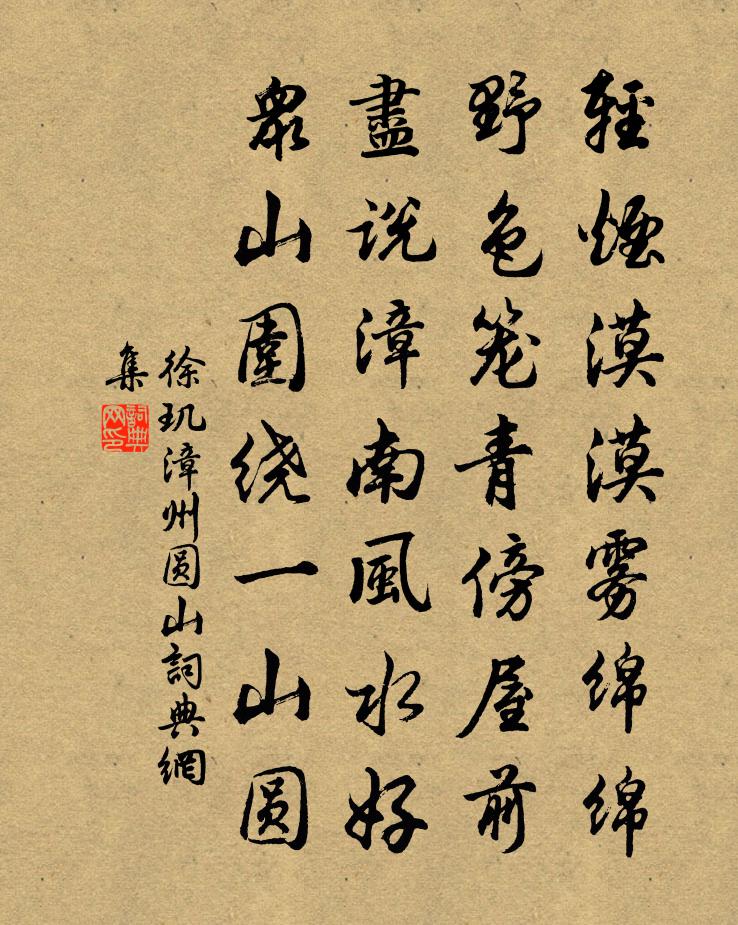 輕煙漠漠雾綿綿
野色笼青傍屋前
盡説漳南風水好
眾山圍绕一山圆
徐玑漳州圆山詞典網
集
詞典
网印